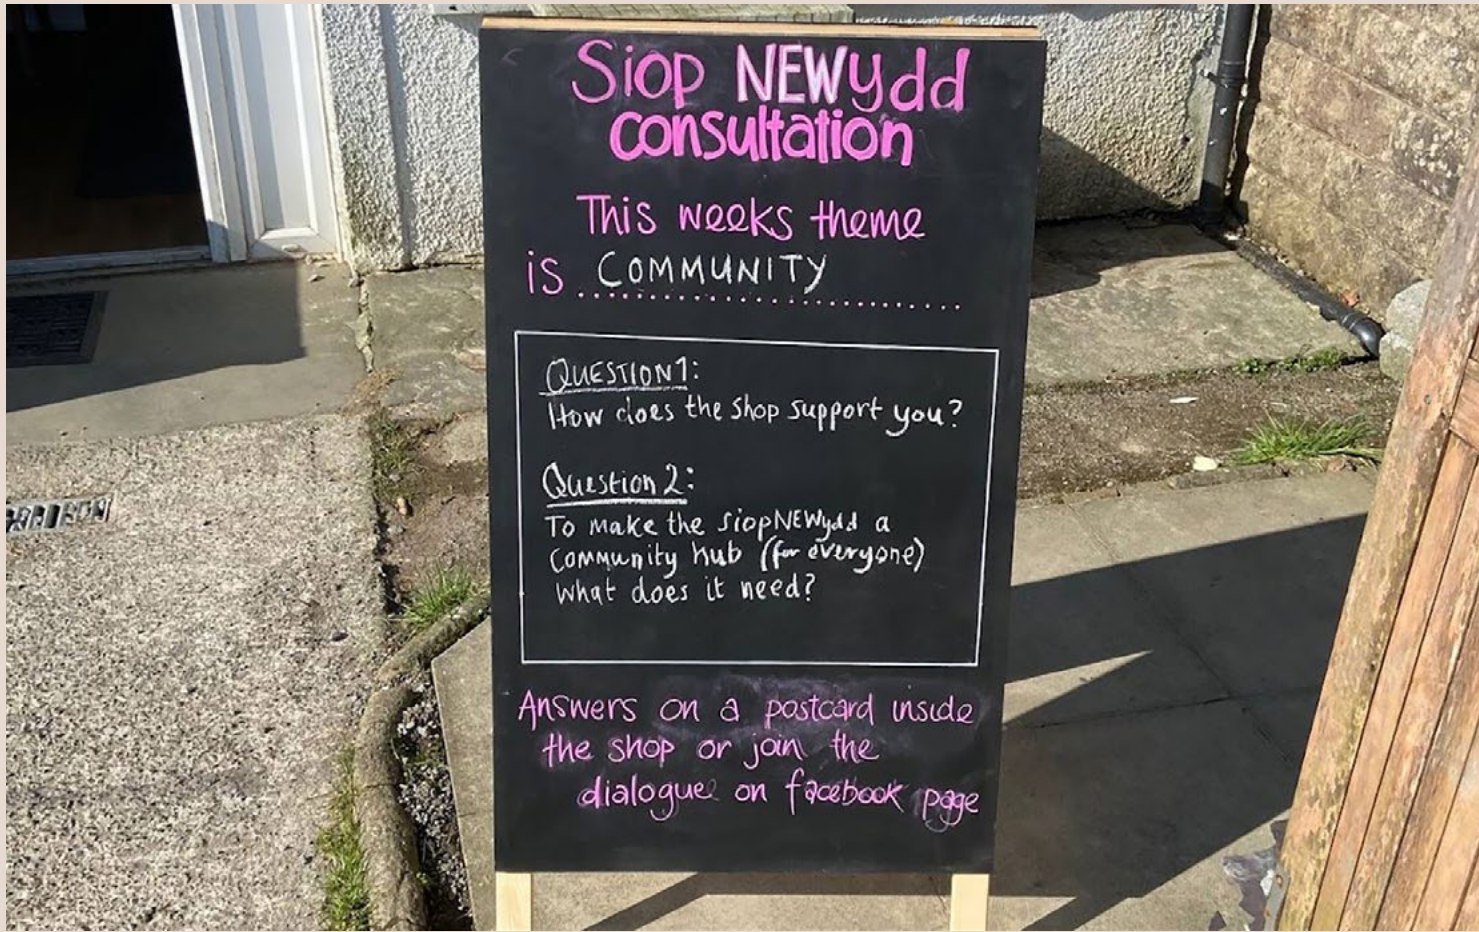 Siop NEWydd
consultation
This weeks theme
is COMMUNITY
QUESTION 1:
How does the shop support you?
Question 2:
To make the siopNEWydd a
Community hub (for everyone)
what does it need?
Answers on a postcard inside
the shop or join the
dialogue on facebook page